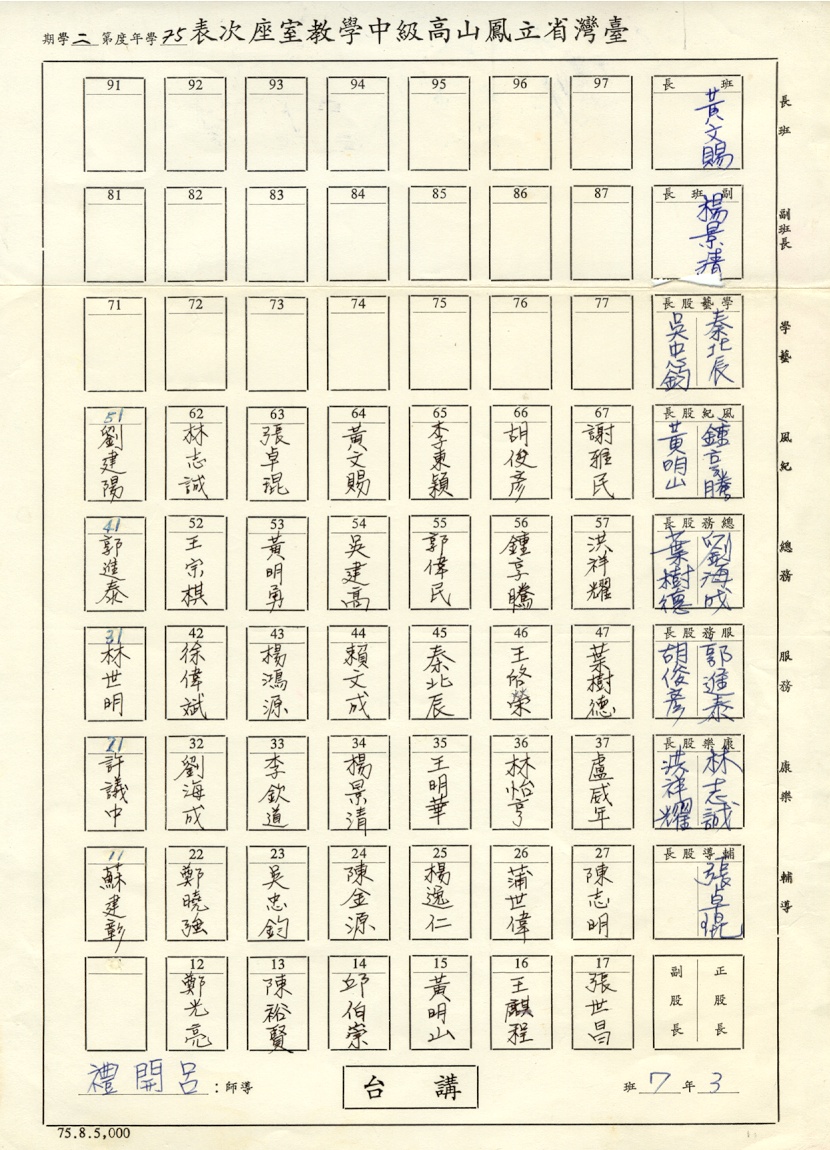 臺灣省立鳳山高級中學教室座次表 75 學年度第 二 學期
91 92 93 94 95 96 97 班長 黃文賜 班長
81 82 83 84 85 86 87 副班長 楊景清 副班長
71 72 73 74 75 76 77 學藝股長 秦北辰 吳忠鈞 學藝
51 劉建陽 62 林志誠 63 張卓琨 64 黃文賜 65 李東穎 66 胡俊彥 67 謝雅民 風紀股長 鍾享騰 黃明山 風紀
41 郭進泰 52 王宗棋 53 黃明勇 54 吳建高 55 郭偉民 56 鍾享騰 57 洪祥耀 總務股長 劉海成 葉樹德 總務
31 林世明 42 徐偉斌 43 楊鴻源 44 賴文成 45 秦北辰 46 王啓榮 47 葉樹德 服務股長 郭進泰 胡俊彥 服務
21 許議中 32 劉海成 33 李欽道 34 楊景清 35 王明華 36 林怡亨 37 盧威年 康樂股長 林志誠 洪祥耀 康樂
11 蘇建彰 22 鄭曉強 23 吳忠鈞 24 陳金源 25 楊逸仁 26 蒲世偉 27 陳志明 輔導股長 張卓琨 輔導
12 鄭光亮 13 陳裕賢 14 邱伯崇 15 黃明山 16 王麒程 17 張世昌 正股長 副股長
導師：呂開禮 講台 3 年 7 班
75.8.5,000